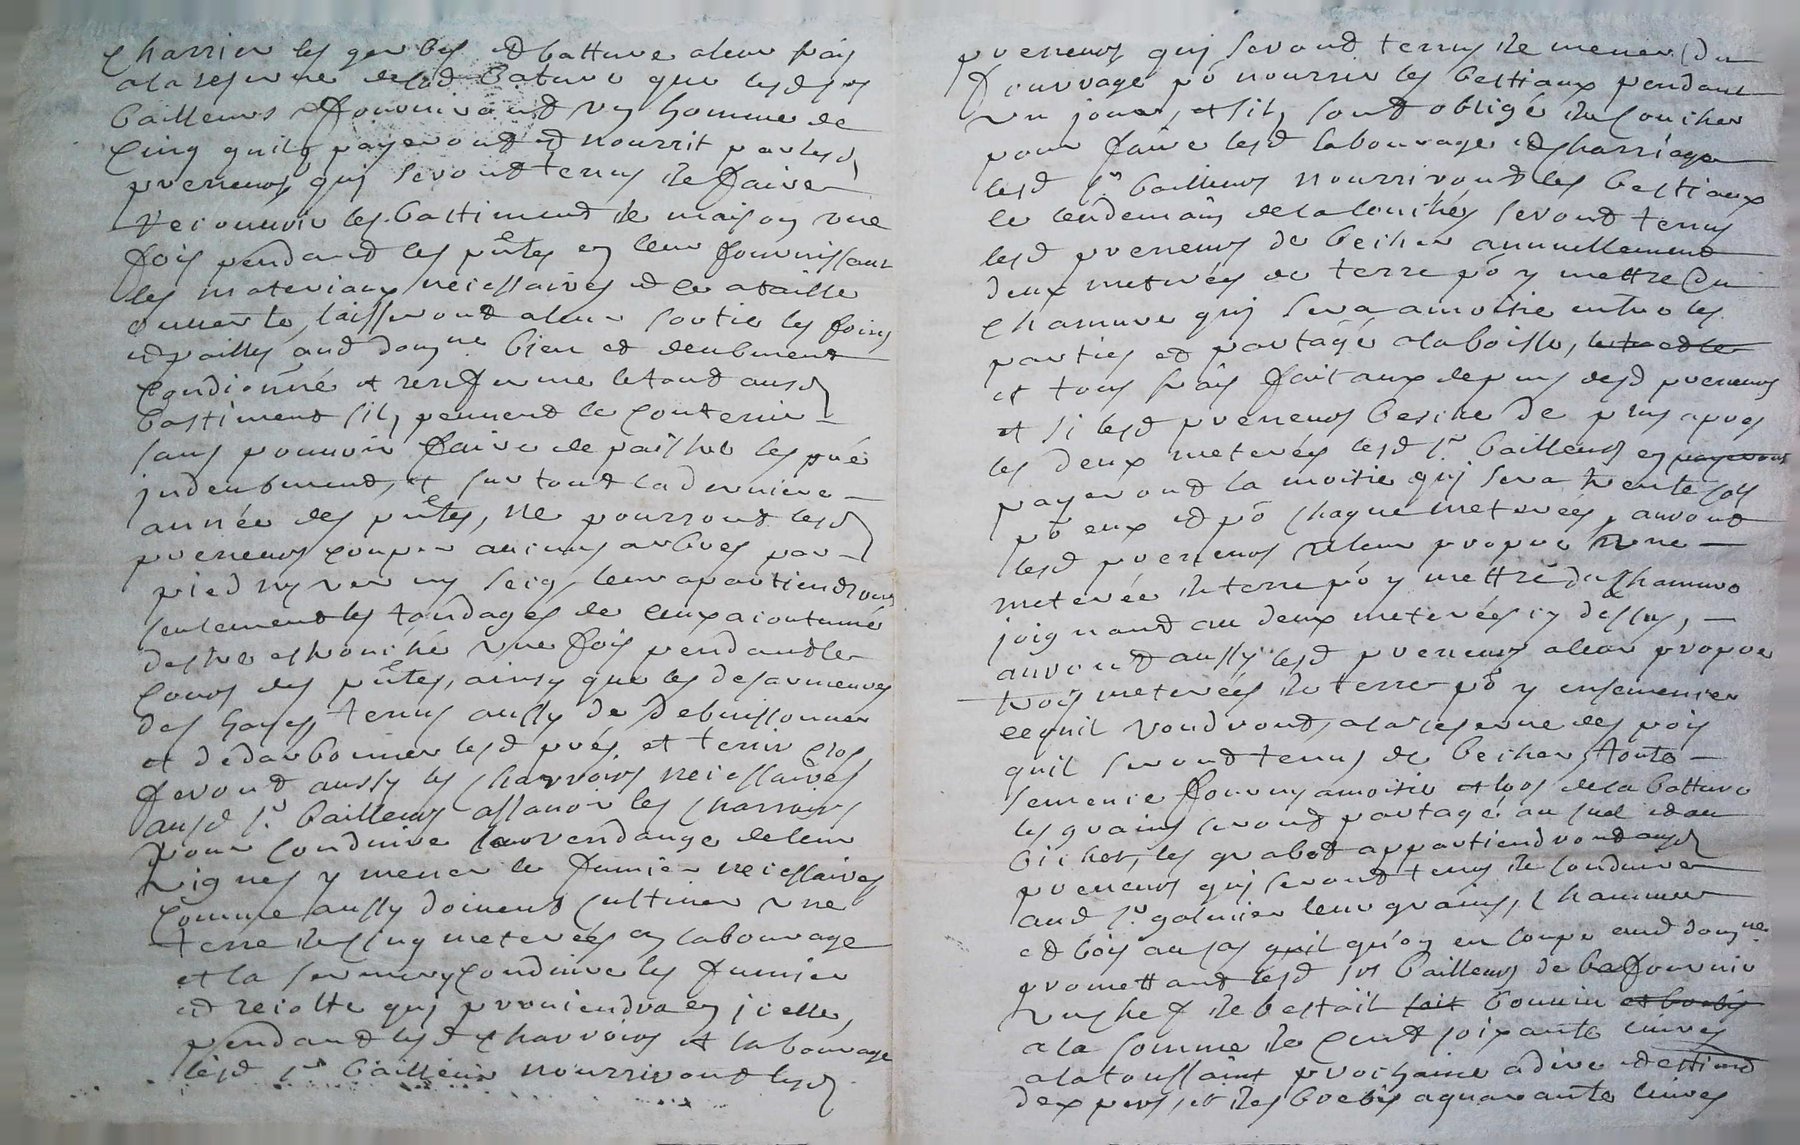 Charrier les gerbes et batture a leur frais
a la reserve de lad. bature que lesd. srs
bailleurs fourniront un homme de
cinq quils payeront et nourrit par lesd.
preneurs, quj seront tenus de faire
recouurir les bastiments de maison une
fois pendant les pntes en leur fournissant
les materiaux neicessaires et de ataille
ouuerte, laisseront a leur sortie les foins
et pailles aud. domne bien et deubment
condionné et renferme le tout ausd.
bastiments sils peuuent le contenir
sans pouuoir faire de paistre les pré
indeubment, et sur tout la derniere
année des pntes, ne pourront lesd.
preneurs couper aucuns arbres par
pied ny ver ny secq, leur apartiendront
seulement les tondages de ceux acoutumé
destre esbronché une fois pendant le
cours des pntes, ainsy que les desarmeures
des hayes, tenus aussy de debuissonner
et dedarbonner lesd. prés et tenir clos,
feront aussy les charroirs neicessaires
ausd. srs bailleurs assauoir les charroirs
pour conduire leur vendange de leur
vignes y mener le fumier neicessaires
comme aussy doiuent cultiuer une
terre de cinq meterées en labourage
et la semer y conduire les fumier
et reicolte quj prouiendra en jcelle,
pendant lesd. charroirs et labourage
lesd. srs bailleurs nourriront lesd.
preneurs quj seront tenus de mener du
fourrage po nourrir les bestiaux pendant
un jour, et sils sont obligé de coucher
pour faire lesd. labourage et charriage
lesd. srs bailleurs nourriront les bestiaux
le lendemain de la couchée, seront tenus
lesd. preneurs de becher annuellement
deux meterées de terre po y mettre du
chamure quj sera a moitie entre les
parties et partagé a la boisse,
et tous frais fait aux depens desd. preneurs
et si lesd. preneurs beche de plus apres
les deux meterées lesd. srs bailleurs en payeront
payeront la moitie quj sera trente sols
po eux et po chaque meterées, auront
lesd. preneurs a leur propre une
meterée de terre po y mettre du chamure
joignant au deux meterées cy dessus,
auront aussy lesd. preneurs a leur propre
trois meterées de terre po y ensemencer
cequil voudront, a la reserue des pois
quil seront tenus de becher, toute
semence fourny a moitie et lors de la batture
les grains seront partagé au suel et au
bichet, les grabot appartiendront ausd.
preneurs quj seront tenus de conduire
aud. sr galmier leur grains, chamure
et bois au cas quil qu'on en coupe aud. domne
promettant lesd. srs bailleurs de fournir
un chef de bestail bouuin
a la somme de cent soixante liures
a la toussaint prochaine a dire et estime
dexpers, et des brebis a quarante liures